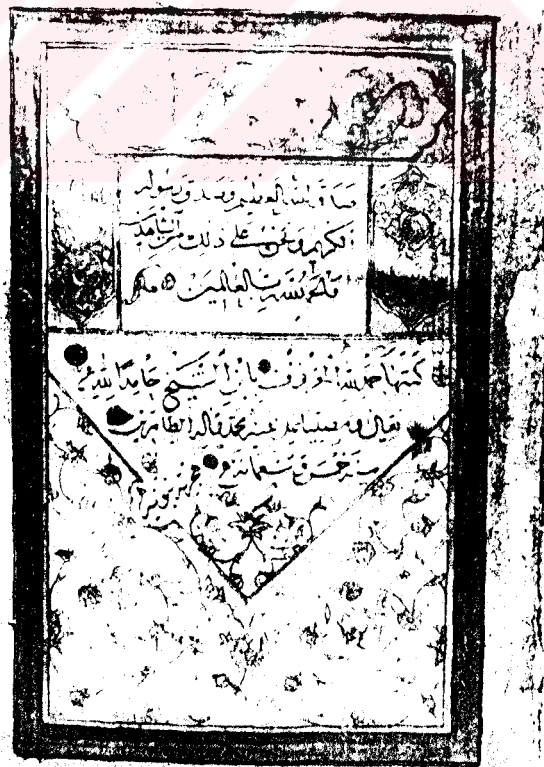 صدق الله العظيم وصدق رسوله
الكريم ونحن على ذلك من الشاهدين
والحمد لله رب العالمين
كتبها حمد الله المعروف بابن الشيخ حامدا لله
تعالى ومصليا على نبيه محمد وآله الطاهرين
سنة خمس وتسعمائة